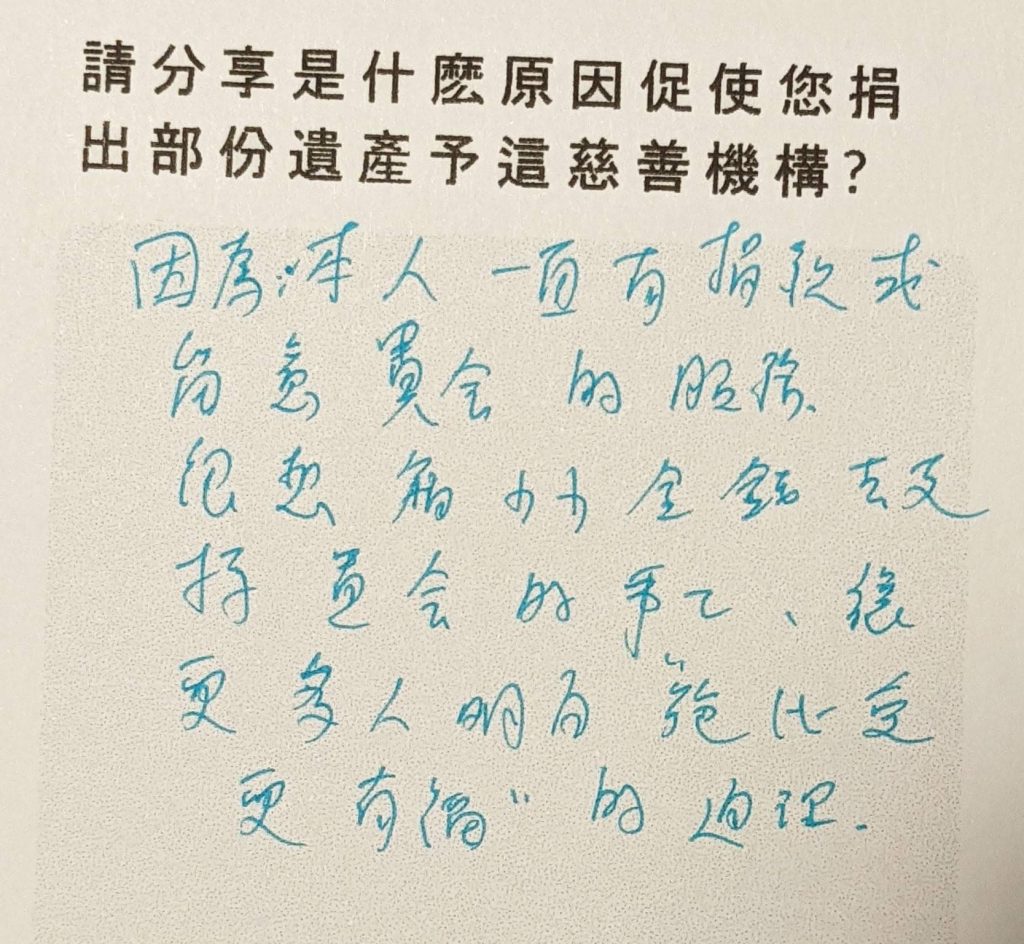 請分享是什麽原因促使您捐
出部份遺產予這慈善機構?
因為本人一直有捐款或
留意貴会的服務.
很想 少少金錢去支
持貴会的事工、讓
更多人明白“施比受
更有福”的道理.